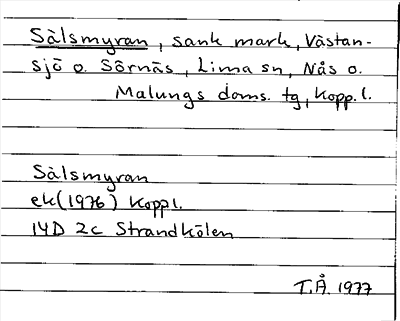 Sälsmyran, sank mark, Västan-
sjö o. Sörnäs, Lima sn, Nås o.
Malungs doms. tg, Kopp. l.
Sälsmyran
ek(1976) Koppl.
14D 2c Strandkölen
T.Å. 1977